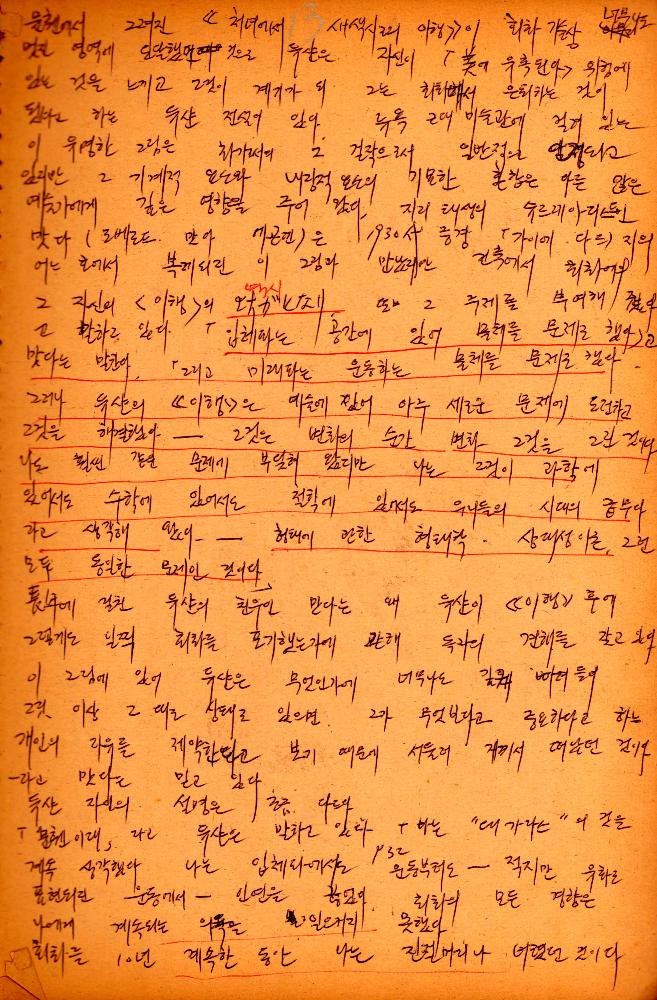 뮨헨에서 그려진 《처녀에서 새색시로의 이행》이 회화 가능 너무나도
먼 영역에 도달했던 것으로 듀샹은 자신이 「美에 유혹된다」 위험에
있는 것을 느끼고 그것이 계기가 되 그는 회화에서 은퇴하는 것이
된다고 하는 듀샹 전설이 있다. 뉴욕 근대 미술관에 걸려 있는
이 유명한 그림은 화가로서의 그 걸작으로서 일반적으로 인정되고
있지만 그 기계적 요소와 내장적 요소의 기묘한 혼합은 다른 많은
예술가에게 깊은 영향을 주어 왔다. 칠리 태생의 슈르레아리스트인
맛타 (로베르토 맛타 에코렌)은 1930年 중경 「카이에 다르」 지의
어느 호에서 복제되린 이 그림과 만났는데 건축에서 회화에의
그 자신의 <이행>의 역시 또 그 주제를 부여해 줬다
고 말하고 있다. 「입체파는 공간에 있어 물체를 문제로 했다」고
맛타는 말한다. 「그리고 미래파는 운동하는 물체를 문제로 했다.
그러나 듀샹의 《이행》은 예술에 있어 아주 새로운 문제에 도전하고
그것을 해결했다 — 그것은 변화의 순간 변화 그것을 그린 것이다
나도 훨씬 같은 문제에 부딪혀 왔지만 나는 그것이 과학에
있어서도 수학에 있어서도 철학에 있어서도 우리들의 시대의 급무다
라고 생각해 왔다. — 형태에 관한 형태학. 상대성이론, 그런
모두 동일한 문제인 것이다」
長年에 걸친 듀샹의 친우인 맛타는 왜 듀샹이 《이행》 후에
그렇게도 일찍 회화를 포기했는가에 관해 독자의 견해를 갖고 있다
이 그림에 있어 듀샹은 무언인가에 너무나도 깊게 빠져 들어
그것 이상 그 때로 상태로 있으면 그가 무엇보다고 중요하다고 하는
개인의 자유를 제약한다고 보기 때문에 서둘러 거기서 떠났던 것이다
—라고 맛타는 믿고 있다
듀샹 자신의 설명은 조금 다르다
「뮨헨 이래, 라고 듀샹은 말하고 있다 「나는 "대 가라스"의 것을
계속 생각했다 나는 입체파에서도 1932 운동부터도 — 적지만 유화로
표현되린 운동에서 — 인연을 끊었다. 회화의 모든 경향은
나에게 계속되는 의욕을 불러일으키지 못했다
회화를 10년 계속한 동안 나는 진절머리나 버렸던 것이다